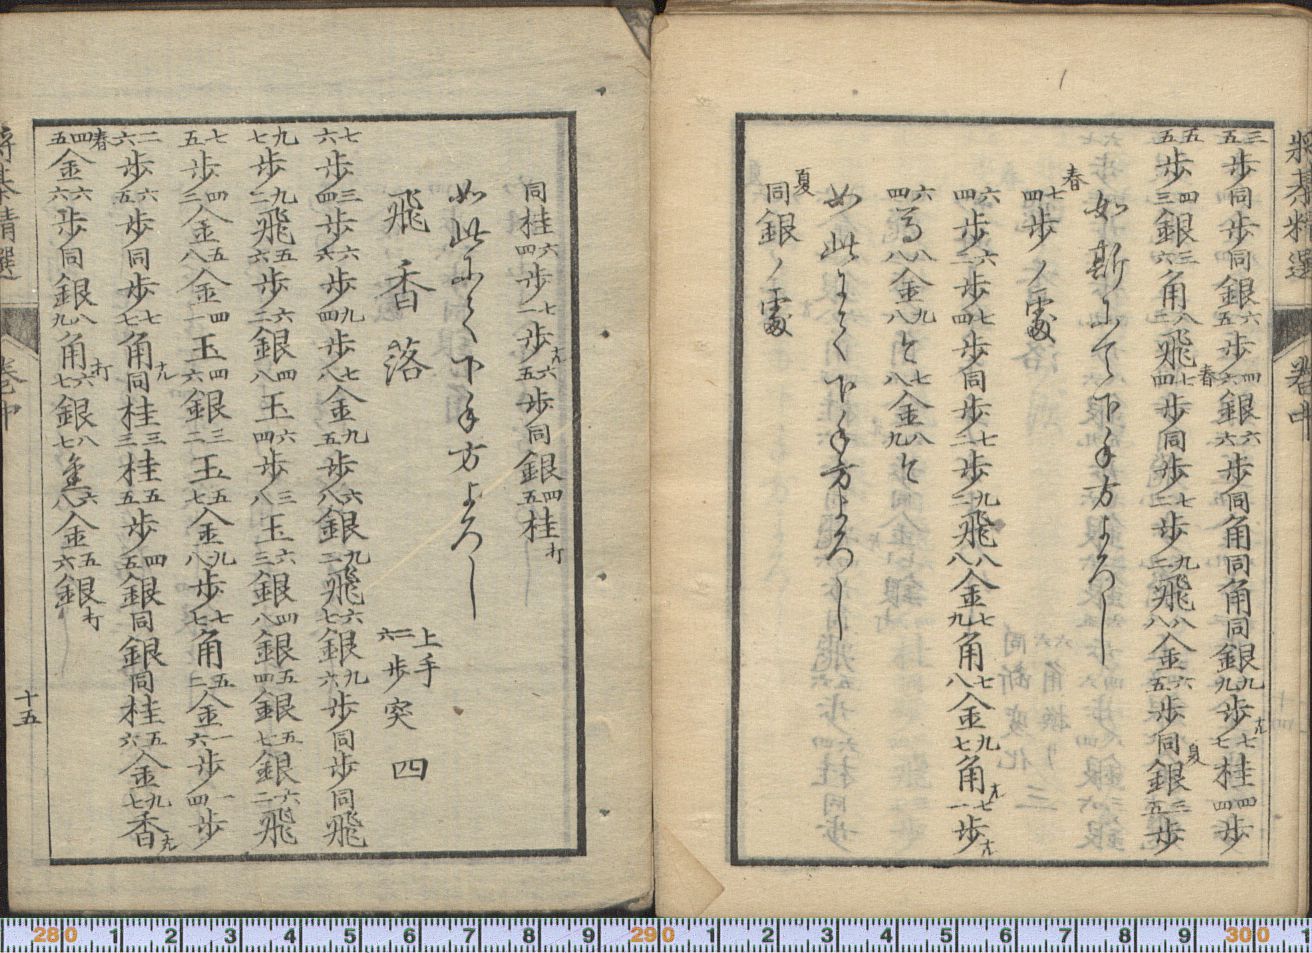 將棊精選
卷中
三五歩同歩同銀六五歩四六銀六六歩同角同角同銀九九歩成七七桂四四歩
五五歩四三銀三六角八三飛春七四歩同歩七三歩九二飛八八金六五歩同銀夏三五歩
如斯にて下手方よろし
春七四歩ノ處
六四歩六三歩七四歩同歩七二歩九二飛八八金七九角七八金九七角成七一歩成
六四馬八八金九八と七八金八九と
如此にて下手方よろし
夏同銀ノ處
同桂六四歩七一歩成六五歩同銀四五桂打
如此にて下手方よろし
飛香落 上手二六歩突 四
七六歩三四歩六六歩九四歩七八金九五歩六八銀九二飛六七銀九六歩同歩同飛
九七歩九二飛五六歩六二銀四八玉六四歩三八玉六三銀四八銀五四銀五七銀六二飛
七五歩四三金五八金四一玉四六銀三二玉五七金九八歩七七角五二金一六歩一四歩
二六歩六五歩同歩七七角成同桂三三桂五五歩四五銀同銀同桂五六金九七香成
春四五金六六歩同銀八九角打六七銀八七金六八金五六銀打
十五